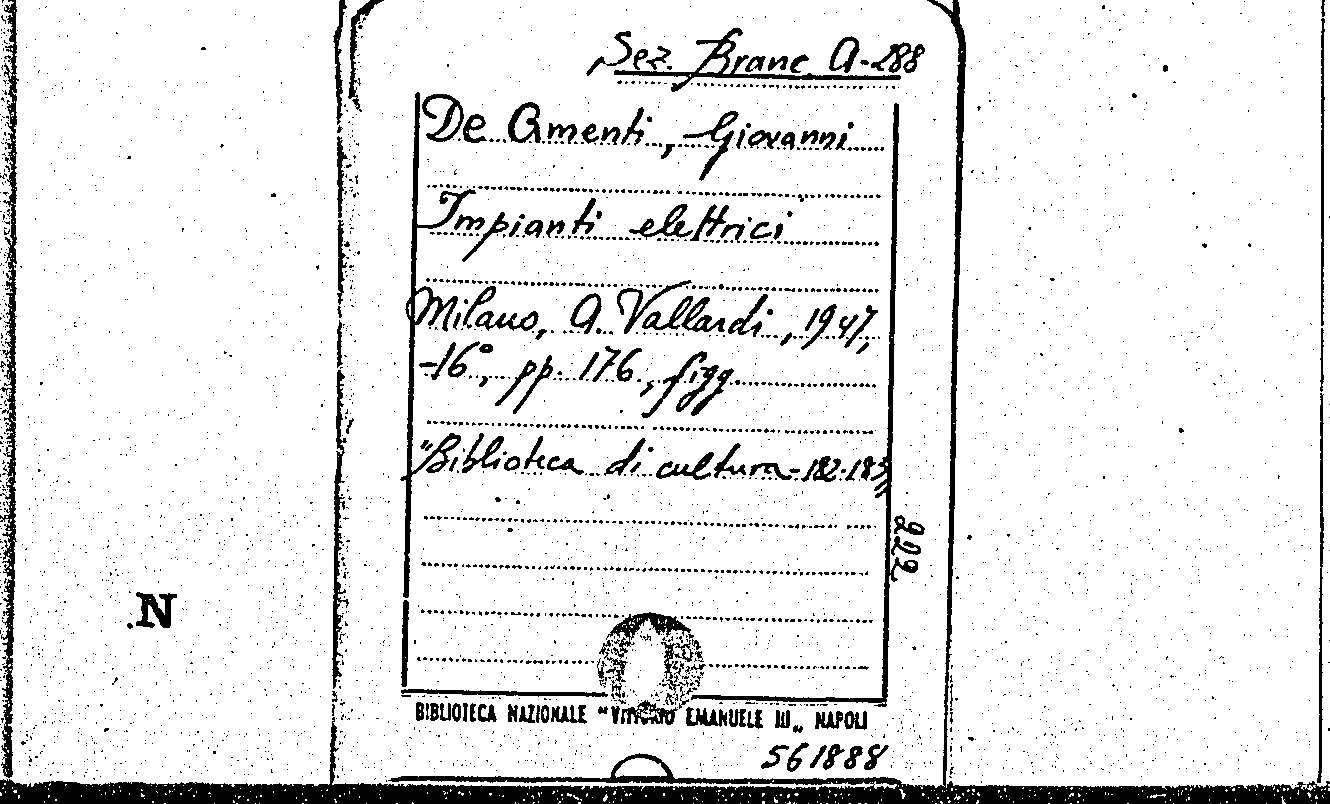 Sez. Branc. A-288
De Amenti, Giovanni
Impianti elettrici
Milano, A. Vallardi, 1947,
-16°, pp. 176, figg.
"Biblioteca di cultura-182-183"
222
N
BIBLIOTECA NAZIONALE "VITTORIO EMANUELE III„ NAPOLI
561888